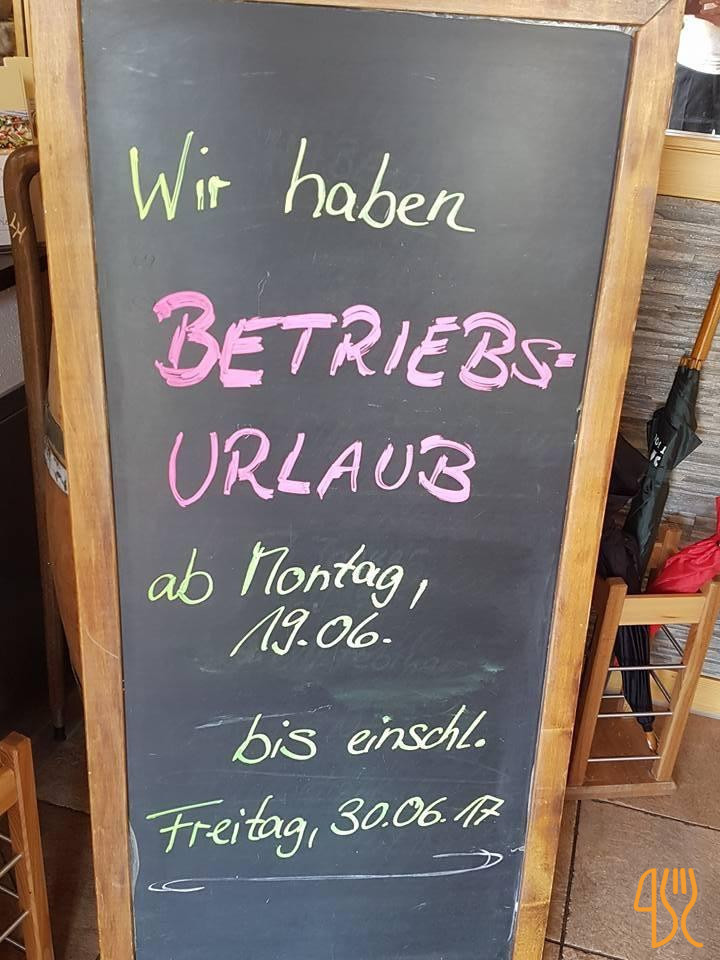 Wir haben
BETRIEBS=
URLAUB
ab Montag,
19.06.
bis einschl.
Freitag, 30.06.17